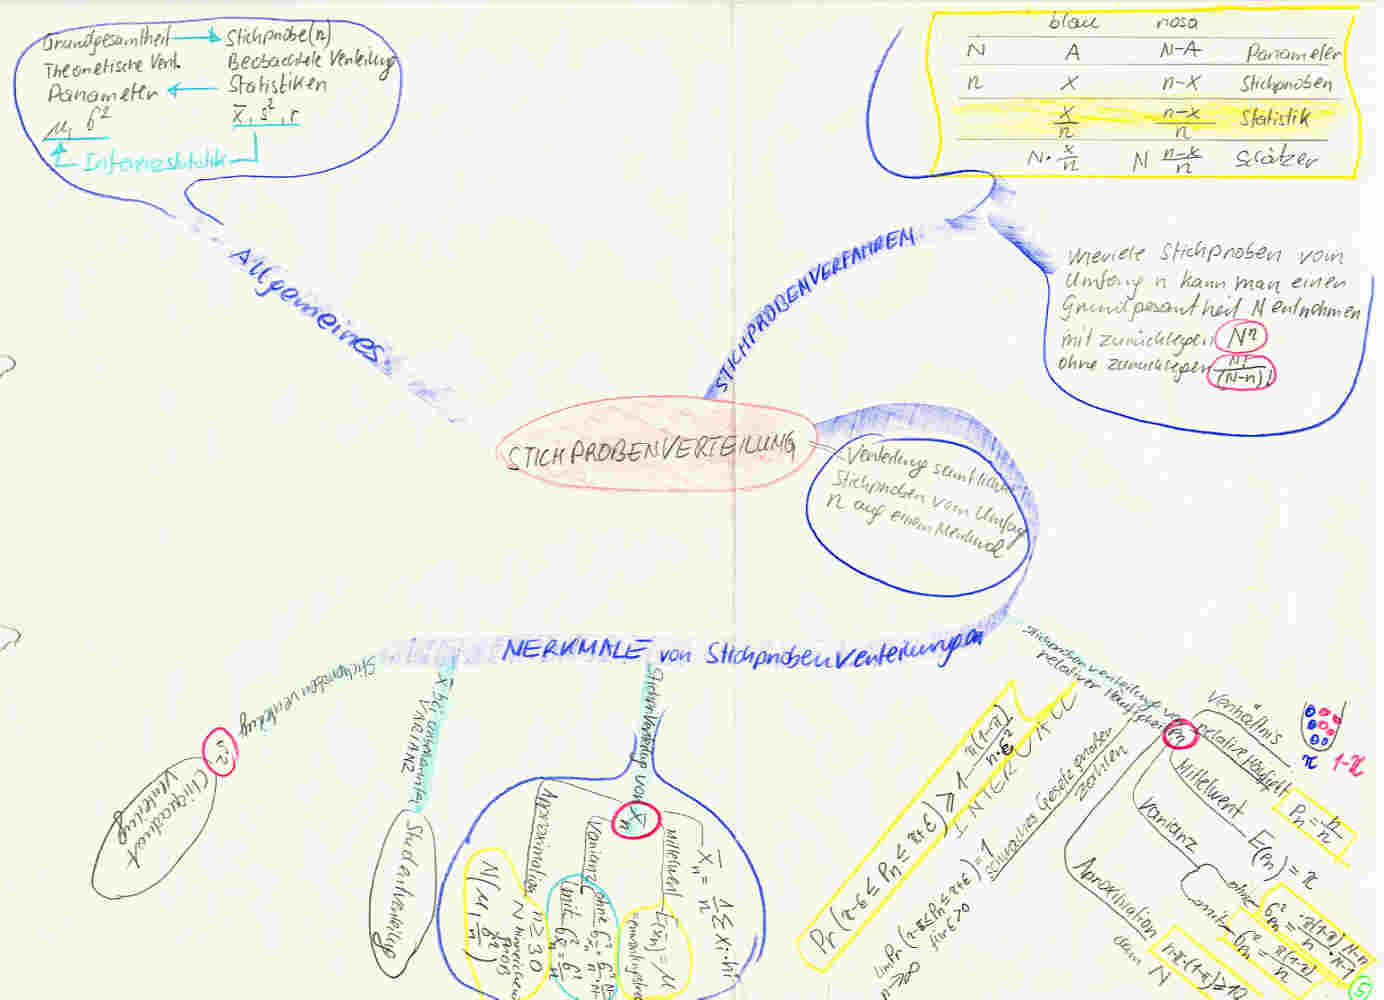 Grundgesamtheit → Stichprobe(n)
Theoretische Vert. Beobachtete Verteilung
Parameter ← Statistiken
μ, σ² x̄, s², r
Inferenzstatistik
Allgemeines
blau rosa
N A N-A Parameter
n x n-x Stichproben
x/n (n-x)/n Statistik
N·x/n N (n-x)/n Schätzer
STICHPROBENVERFAHREN
wieviele Stichproben vom
Umfang n kann man einer
Grundgesamtheit N entnehmen
mit zurücklegen N^n
ohne zurücklegen N!/(N-n)!
STICHPROBENVERTEILUNG
Verteilung sämtlicher
Stichproben vom Umfang
n auf einem Merkmal
MERKMALE von Stichprobenverteilungen
Stichprobenverteilung
Chiquadrat
Verteilung
VARIANZ
Studentverteilung
X̄n
X̄n = 1/n Σ xi · hi
Mittelwert E(x̄n) = μ
Varianz
ohne
mit σ² = σ²/n
Approximation
n ≥ 30
N(μ, σ²/n)
Stichprobenverteilung von
relativer Häufigkeit
Pn
Verhältnis
relative Häufigkeit
π 1-π
Pn = h/n
Mittelwert E(Pn) = π
Varianz
ohne σ²Pn = π(1-π)/n · (N-n)/(N-1)
mit σ²Pn = π(1-π)/n
Aproximation
dann N
n·π·(1-π) ≥ 10
Pr(π-ε ≤ Pn ≤ π+ε) ≥ 1 - π(1-π)/(n·ε²)
INTERVALL
schwaches Gesetz großer
Zahlen
lim Pr (π-ε ≤ Pn ≤ π+ε) = 1
n→∞ für ε>0
5